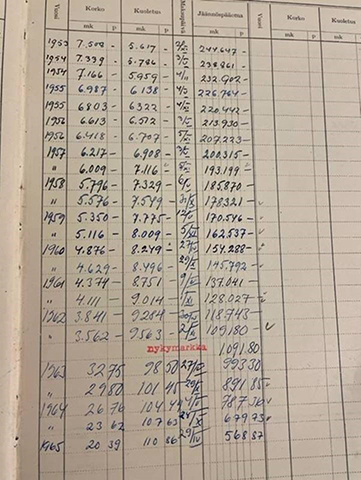 Vuosi Korko Kuoletus Maksupäivä Jäännöspääoma Vuosi Korko
mk p mk p mk p mk
1953 7.508 – 5.617 – 244.647 –
1954 7.339 – 5.786 – 238.861 –
1954 7.166 – 5.959 – 232.902 –
1955 6.987 – 6.138 – 226.764 –
1955 6803 – 6322 – 220.442 –
1956 6.613 – 6.512 – 213.930 –
1956 6.418 – 6.707 – 207.223 –
1957 6.217 – 6.908 – 200.315 –
" 6.009 – 7.116 – 193.199 –
1958 5.796 – 7.329 – 185.870 –
" 5.576 – 7.549 – 178.321 –
1959 5.350 – 7.775 – 170.546 –
" 5.116 – 8.009 – 162.537 –
1960 4.876 – 8.249 – 154.288 –
" 4.629 – 8.496 – 145.792 –
1961 4.374 – 8.751 – 137.041 –
" 4.111 – 9.014 – 128.027 –
1962 3.841 – 9.284 – 118.743 –
" 3.562 – 9.563 – 109.180 –
nykymarkka 1091.80
1963 32 75 98 50 993 30
" 29 80 101 45 891 85
1964 26 76 104 49 787 36
" 23 62 107 63 679 73
1965 20 39 110 86 568 87